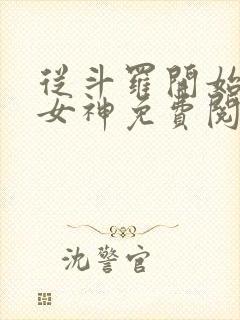 從斗羅開始
女神免費閱
沈警官